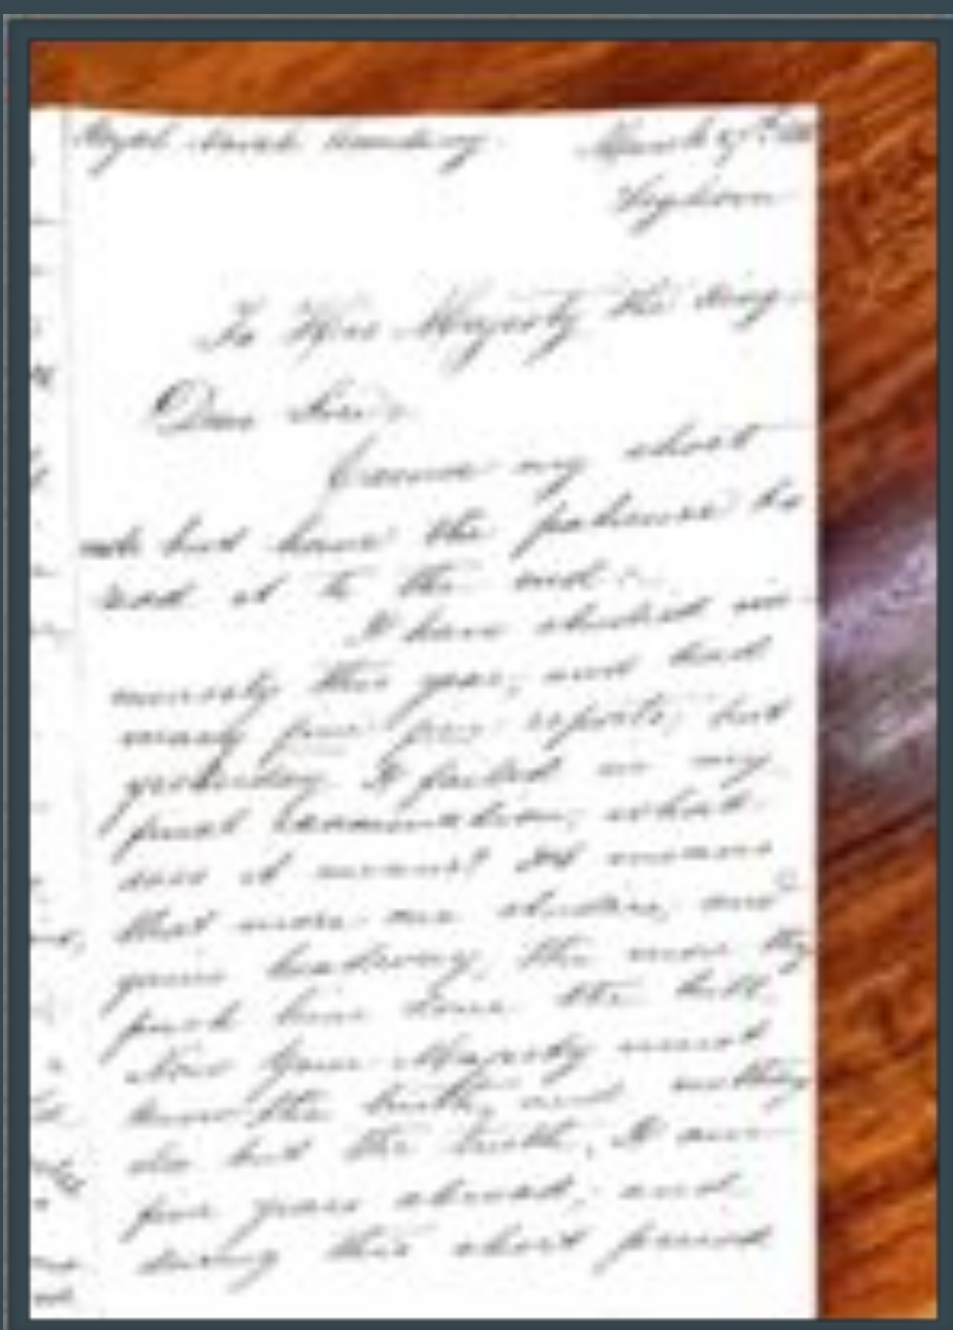 Royal Naval Academy. March 27th
Leghorn
To His Majesty the King
Dear Sire:
Excuse my short
note but have the patience to
read it to the end:
I have studied im-
mensely this year, and had
many fine reports; but
yesterday I failed in my
final examination; what
does it means? It means
that more one studies, and
the more they
push him down the hill.
Now Your Majesty must
know the truth, and nothing
else but the truth, I am
five years abroad, and
during this short period